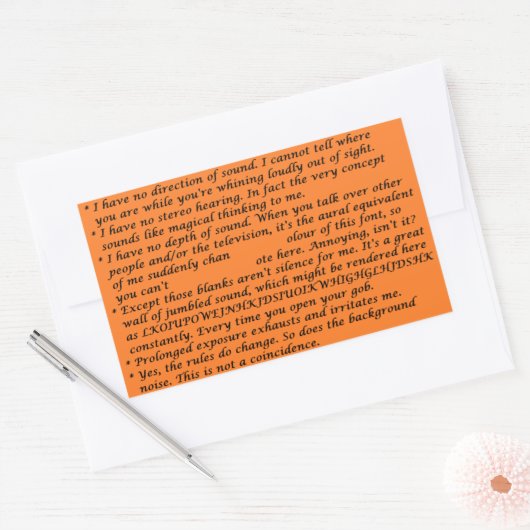 * I have no direction of sound. I cannot tell where
you are while you're whining loudly out of sight.
* I have no stereo hearing. In fact the very concept
sounds like magical thinking to me.
* I have no depth of sound. When you talk over other
people and/or the television, it's the aural equivalent
of me suddenly chan olour of this font, so
you can't ote here. Annoying, isn't it?
* Except those blanks aren't silence for me. It's a great
wall of jumbled sound, which might be rendered here
as LKOIUPOWEJNHKJDSIUOIKWHJGHGLHJDSHK
constantly. Every time you open your gob.
* Prolonged exposure exhausts and irritates me.
* Yes, the rules do change. So does the background
noise. This is not a coincidence.